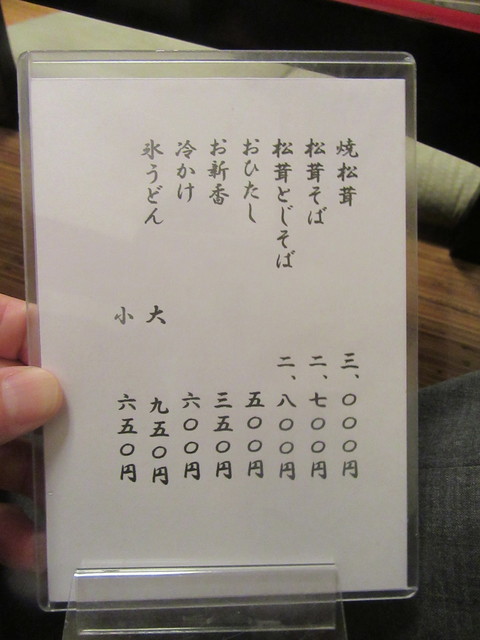 焼松茸 三、〇〇〇円
松茸そば 二、七〇〇円
松茸とじそば 二、八〇〇円
おひたし 五〇〇円
お新香 三五〇円
冷かけ 六〇〇円
氷うどん 大 九五〇円
小 六五〇円